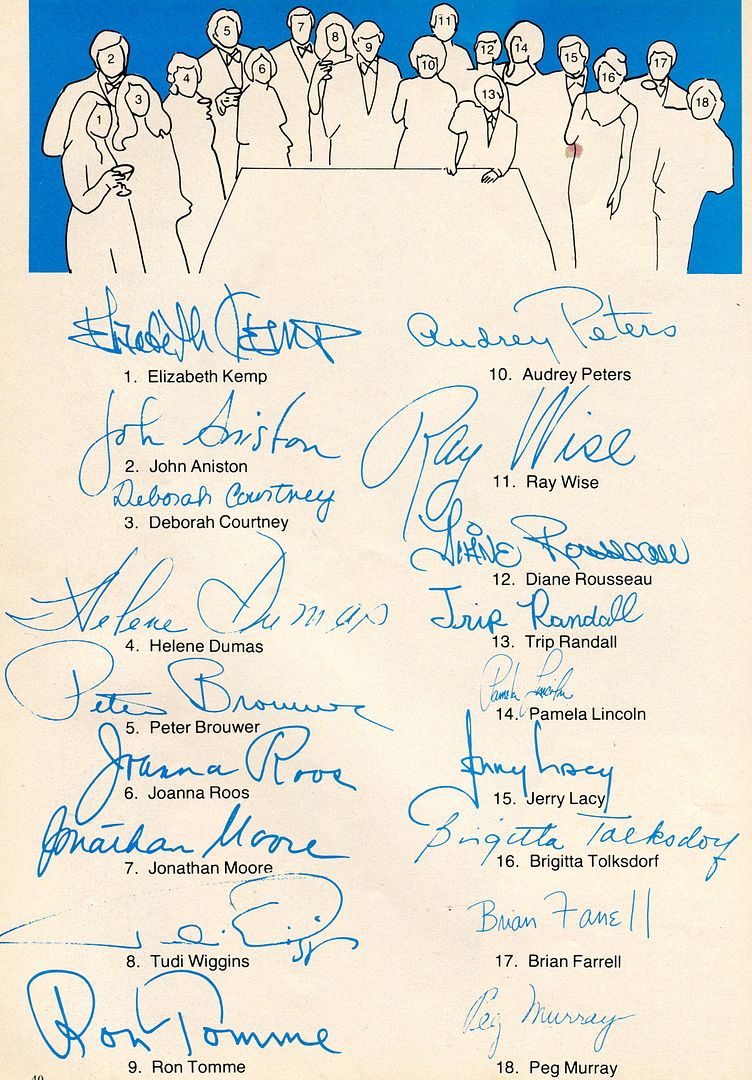 1
2
3
4
5
6
7
8
9
10
11
12
13
14
15
16
17
18
Elizabeth Kemp
1. Elizabeth Kemp
John Aniston
2. John Aniston
Deborah Courtney
3. Deborah Courtney
Helene Dumas
4. Helene Dumas
Peter Brouwer
5. Peter Brouwer
Joanna Roos
6. Joanna Roos
Jonathan Moore
7. Jonathan Moore
Tudi Wiggins
8. Tudi Wiggins
Ron Tomme
9. Ron Tomme
Audrey Peters
10. Audrey Peters
Ray Wise
11. Ray Wise
Diane Rousseau
12. Diane Rousseau
Trip Randall
13. Trip Randall
Pamela Lincoln
14. Pamela Lincoln
Jerry Lacy
15. Jerry Lacy
Brigitta Tolksdorf
16. Brigitta Tolksdorf
Brian Farrell
17. Brian Farrell
Peg Murray
18. Peg Murray